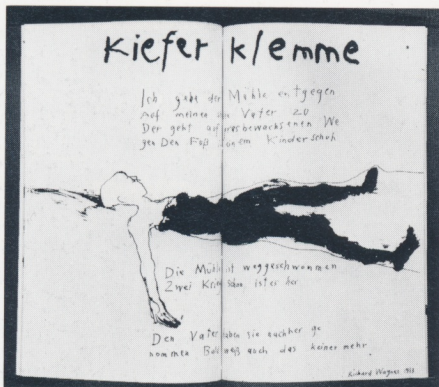 Kiefer klemme
Ich gehe der Mühle entgegen
Auf meinen Vater zu
Der geht auf grasbewachsenen We
gen Den Fuß einem Kinderschuh
Die Mühle ist weggeschwommen
Zwei Kriege schon ist es her
Den Vater haben sie nachher ge
nommen Bald weiß auch das keiner mehr
Richard Wagner